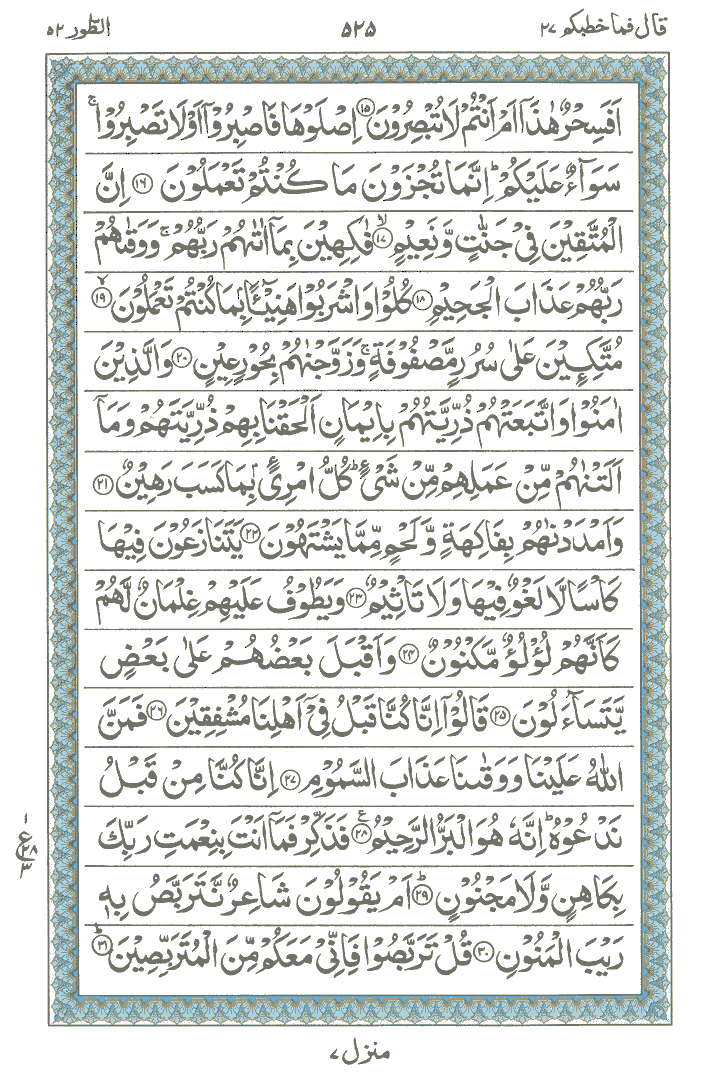 قال فما خطبكم ٢٧ ٥٢٥ الطّور ٥٢
اَفَسِحْرٌ هٰذَاۤ اَمْ اَنْتُمْ لَا تُبْصِرُوْنَ ﴿۱۵﴾ اِصْلَوْهَا فَاصْبِرُوْۤا اَوْ لَا تَصْبِرُوْا ۚ
سَوَآءٌ عَلَیْكُمْ ؕ اِنَّمَا تُجْزَوْنَ مَا كُنْتُمْ تَعْمَلُوْنَ ﴿۱۶﴾ اِنَّ
الْمُتَّقِیْنَ فِیْ جَنّٰتٍ وَّ نَعِیْمٍ ﴿ۙ۱۷﴾ فٰكِهِیْنَ بِمَاۤ اٰتٰىهُمْ رَبُّهُمْ ۚ وَ وَقٰىهُمْ
رَبُّهُمْ عَذَابَ الْجَحِیْمِ ﴿۱۸﴾ كُلُوْا وَ اشْرَبُوْا هَنِیْٓـًٔۢا بِمَا كُنْتُمْ تَعْمَلُوْنَ ﴿ۙ۱۹﴾
مُتَّكِـِٕیْنَ عَلٰی سُرُرٍ مَّصْفُوْفَةٍ ۚ وَ زَوَّجْنٰهُمْ بِحُوْرٍ عِیْنٍ ﴿۲۰﴾ وَ الَّذِیْنَ
اٰمَنُوْا وَ اتَّبَعَتْهُمْ ذُرِّیَّتُهُمْ بِاِیْمَانٍ اَلْحَقْنَا بِهِمْ ذُرِّیَّتَهُمْ وَ مَاۤ
اَلَتْنٰهُمْ مِّنْ عَمَلِهِمْ مِّنْ شَیْءٍ ؕ كُلُّ امْرِیٍٔۢ بِمَا كَسَبَ رَهِیْنٌ ﴿۲۱﴾
وَ اَمْدَدْنٰهُمْ بِفَاكِهَةٍ وَّ لَحْمٍ مِّمَّا یَشْتَهُوْنَ ﴿۲۲﴾ یَتَنَازَعُوْنَ فِیْهَا
كَاْسًا لَّا لَغْوٌ فِیْهَا وَ لَا تَاْثِیْمٌ ﴿۲۳﴾ وَ یَطُوْفُ عَلَیْهِمْ غِلْمَانٌ لَّهُمْ
كَاَنَّهُمْ لُؤْلُؤٌ مَّكْنُوْنٌ ﴿۲۴﴾ وَ اَقْبَلَ بَعْضُهُمْ عَلٰی بَعْضٍ
یَّتَسَآءَلُوْنَ ﴿۲۵﴾ قَالُوْۤا اِنَّا كُنَّا قَبْلُ فِیْۤ اَهْلِنَا مُشْفِقِیْنَ ﴿۲۶﴾ فَمَنَّ
اللّٰهُ عَلَیْنَا وَ وَقٰىنَا عَذَابَ السَّمُوْمِ ﴿۲۷﴾ اِنَّا كُنَّا مِنْ قَبْلُ
نَدْعُوْهُ ؕ اِنَّهٗ هُوَ الْبَرُّ الرَّحِیْمُ ﴿۲۸﴾ فَذَكِّرْ فَمَاۤ اَنْتَ بِنِعْمَتِ رَبِّكَ
بِكَاهِنٍ وَّ لَا مَجْنُوْنٍ ﴿ؕ۲۹﴾ اَمْ یَقُوْلُوْنَ شَاعِرٌ نَّتَرَبَّصُ بِهٖ
رَیْبَ الْمَنُوْنِ ﴿۳۰﴾ قُلْ تَرَبَّصُوْا فَاِنِّیْ مَعَكُمْ مِّنَ الْمُتَرَبِّصِیْنَ ﴿ؕ۳۱﴾
١
ع ٢٨
٣
منزل ٧